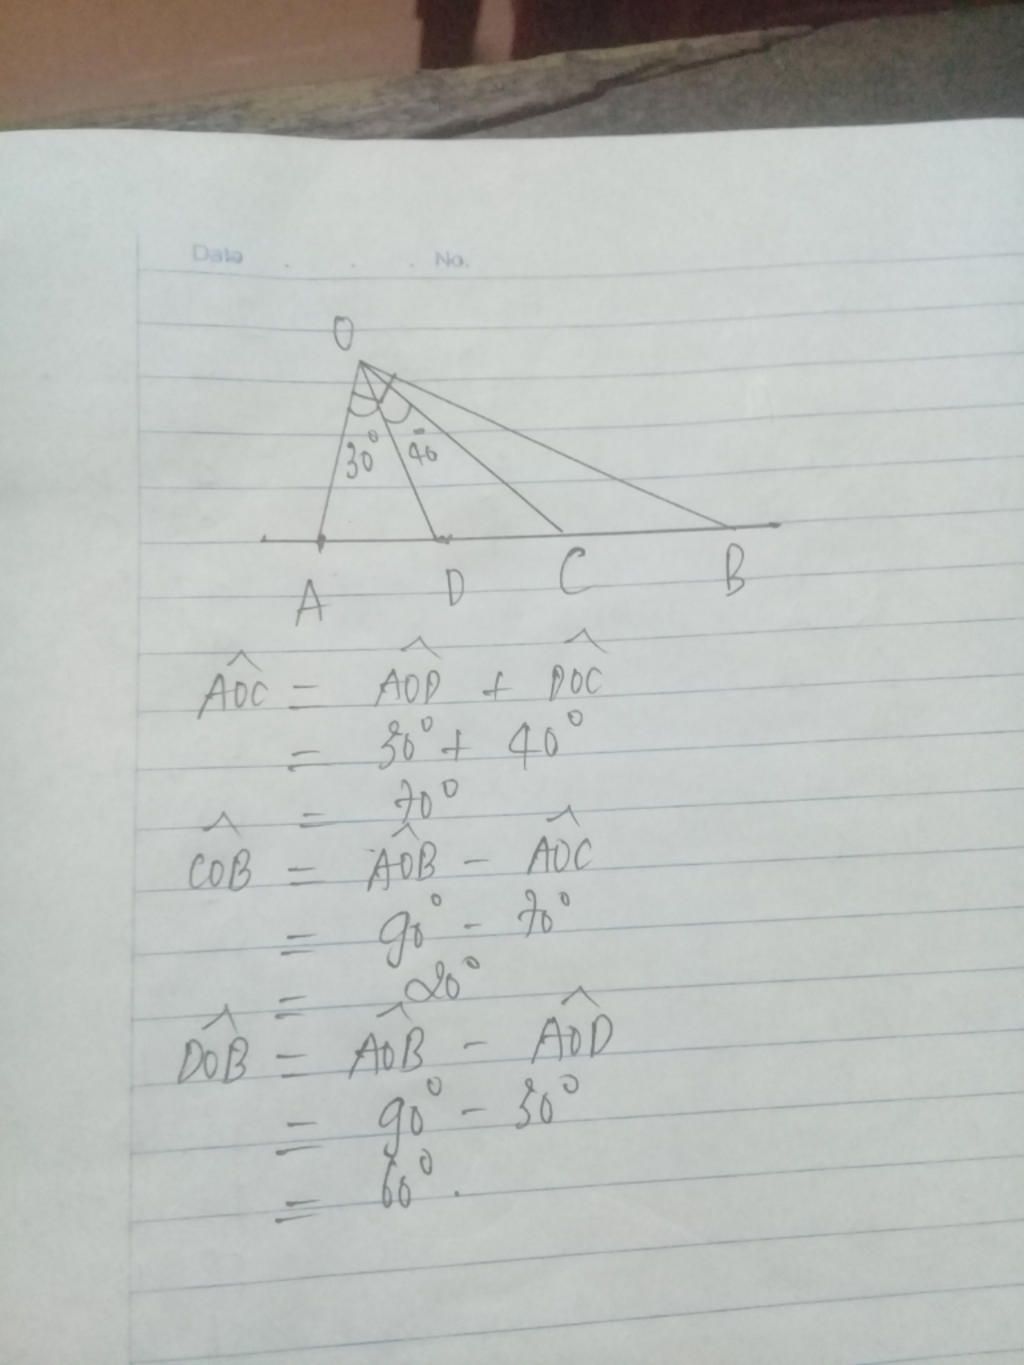 Date . . . No.
O
30° 40
A D C B
AOC = AOD + DOC
= 30° + 40°
= 70°
COB = AOB - AOC
= 90° - 70°
= 20°
DOB = AOB - AOD
= 90° - 30°
= 60°.